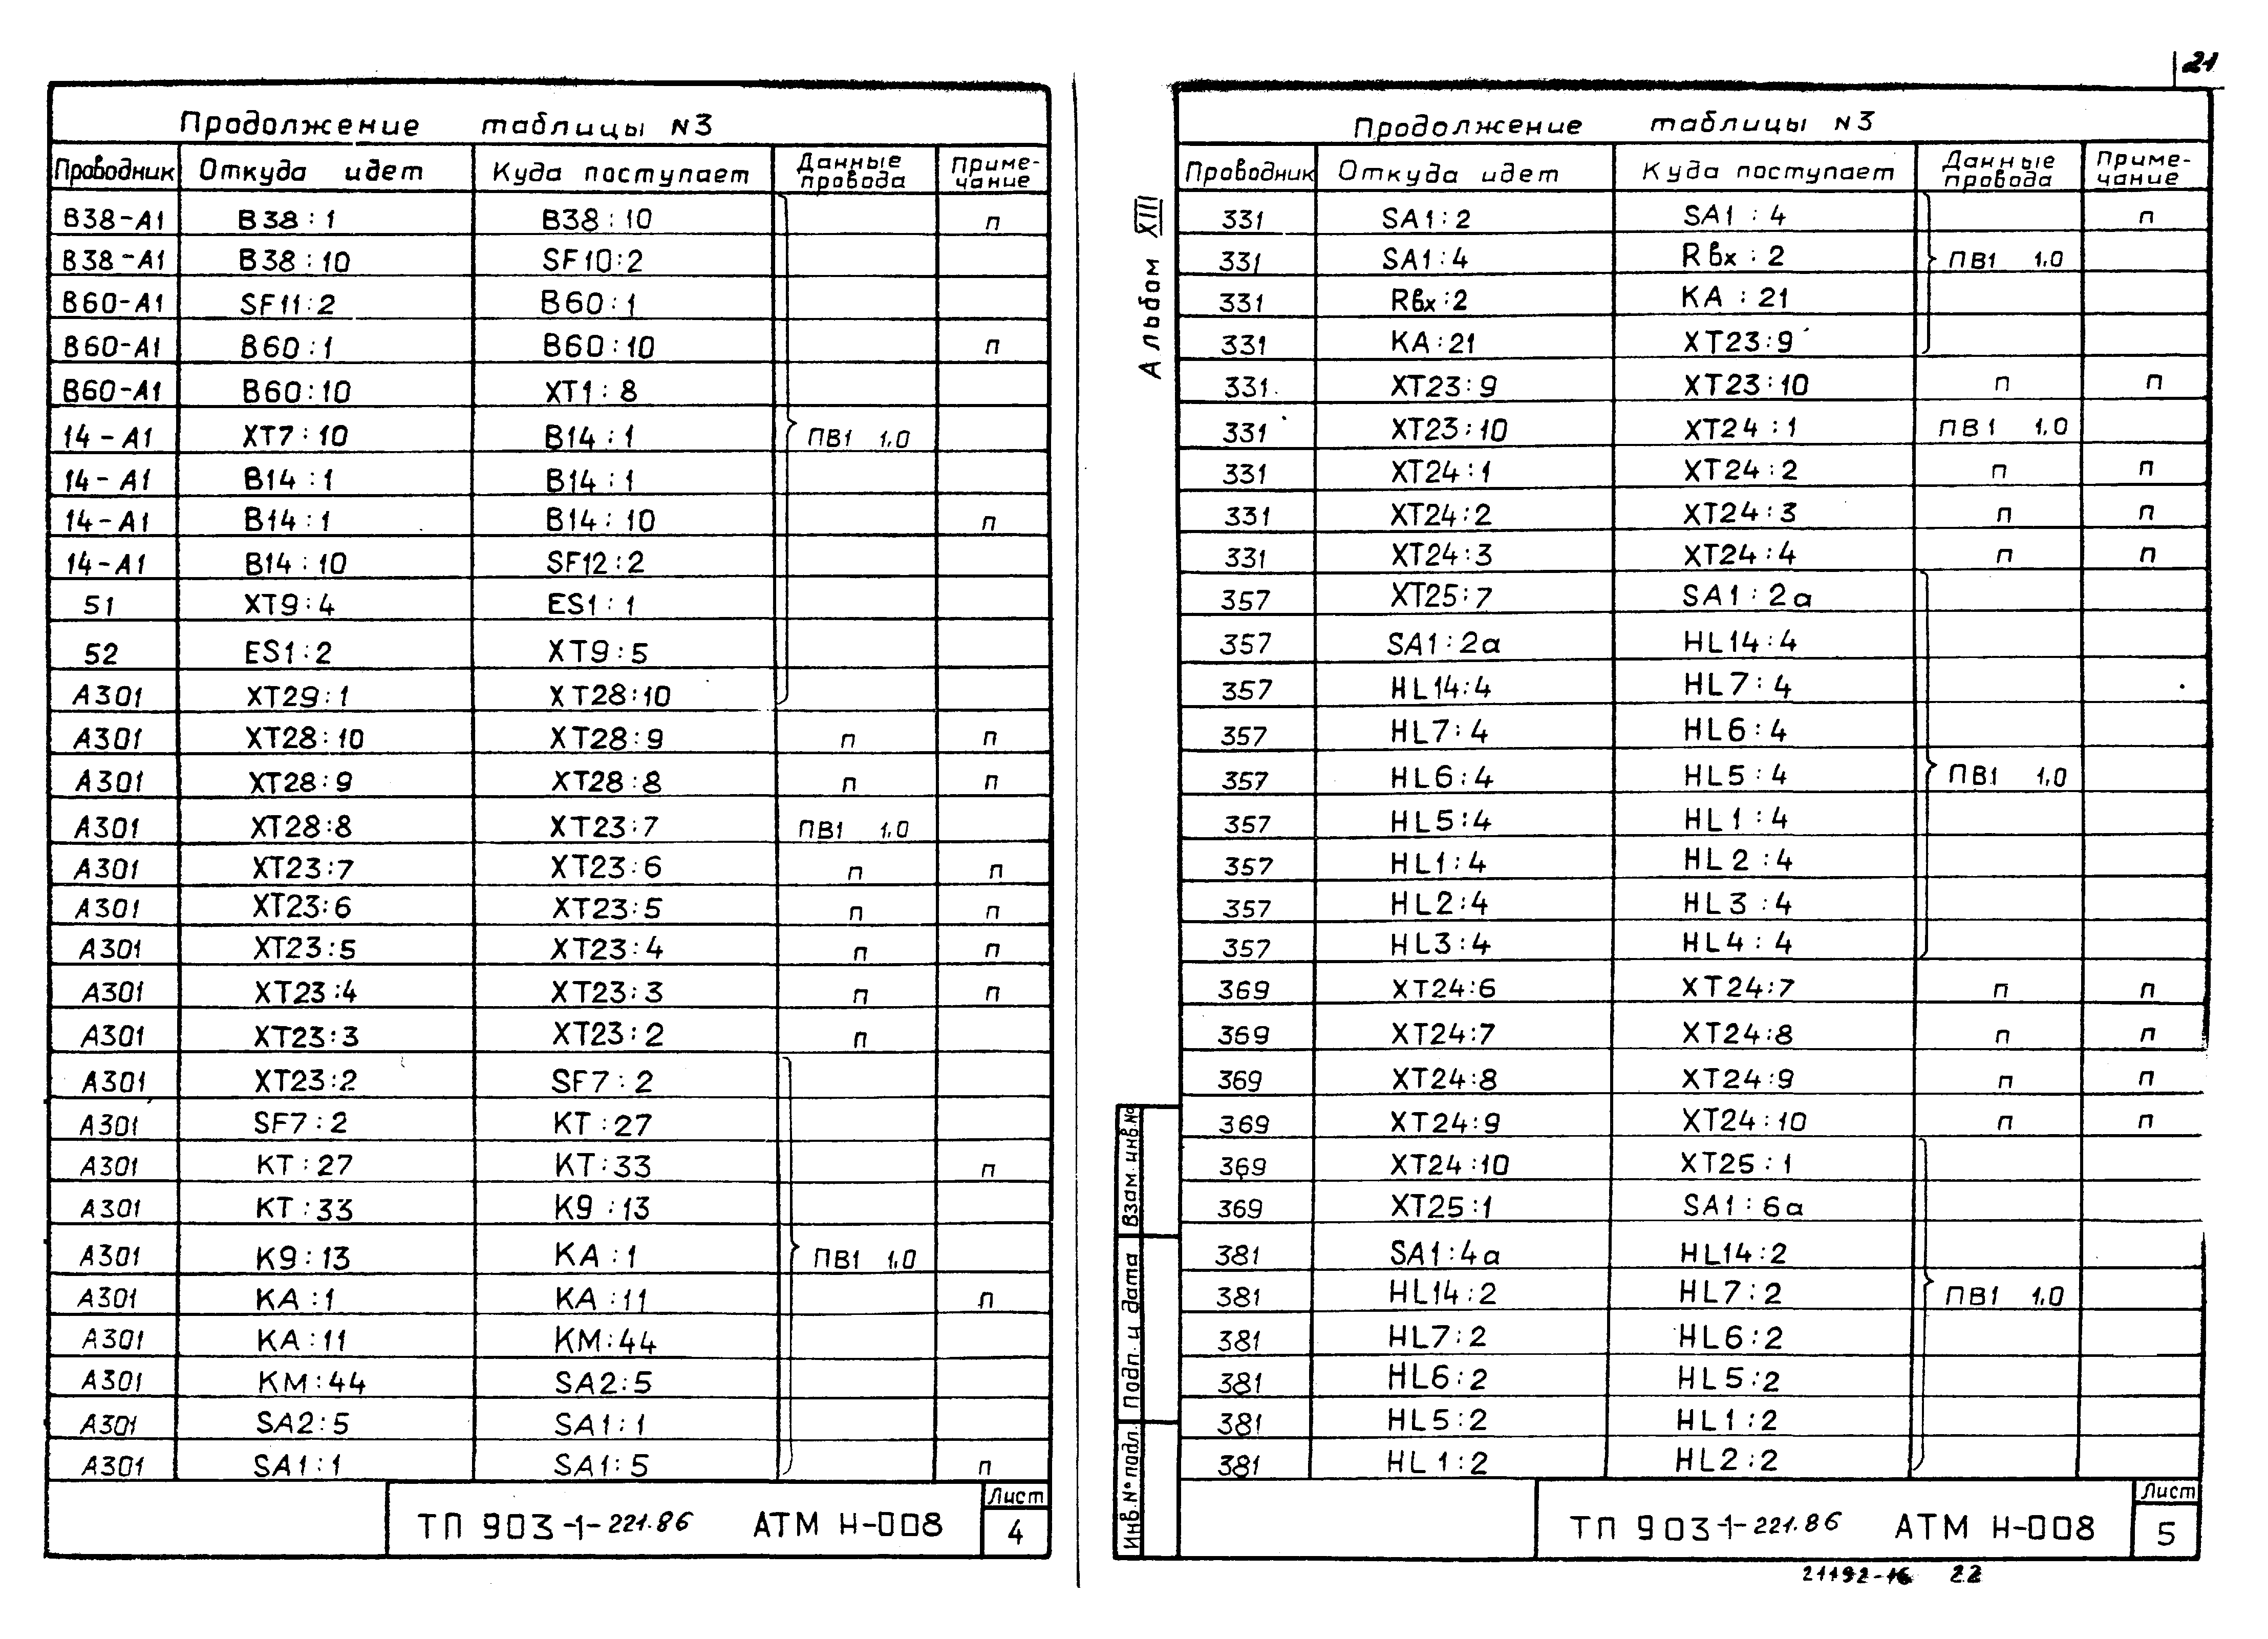 21
Продолжение таблицы N3
Проводник Откуда идет Куда поступает Данные провода Приме-чание
В38-А1 В38:1 В38:10 п
В38-А1 В38:10 SF10:2
В60-А1 SF11:2 В60:1
В60-А1 В60:1 В60:10 п
В60-А1 В60:10 XT1:8
14-А1 XT7:10 В14:1 ПВ1 1,0
14-А1 В14:1 В14:1
14-А1 В14:1 В14:10 п
14-А1 В14:10 SF12:2
51 XT9:4 ES1:1
52 ES1:2 XT9:5
А301 XT29:1 XT28:10
А301 XT28:10 XT28:9 п п
А301 XT28:9 XT28:8 п п
А301 XT28:8 XT23:7 ПВ1 1,0
А301 XT23:7 XT23:6 п п
А301 XT23:6 XT23:5 п п
А301 XT23:5 XT23:4 п п
А301 XT23:4 XT23:3 п п
А301 XT23:3 XT23:2 п
А301 XT23:2 SF7:2
А301 SF7:2 KT:27
А301 KT:27 KT:33 п
А301 KT:33 K9:13
А301 K9:13 KA:1 ПВ1 1,0
А301 KA:1 KA:11 п
А301 KA:11 KM:44
А301 KM:44 SA2:5
А301 SA2:5 SA1:1
А301 SA1:1 SA1:5 п
ТП 903-1-221.86 АТМ Н-008
Лист
4
Альбом XIII
Продолжение таблицы N3
Проводник Откуда идет Куда поступает Данные провода Приме-чание
331 SA1:2 SA1:4 п
331 SA1:4 Rвх:2 ПВ1 1,0
331 Rвх:2 KA:21
331 KA:21 XT23:9
331 XT23:9 XT23:10 п п
331 XT23:10 XT24:1 ПВ1 1,0
331 XT24:1 XT24:2 п п
331 XT24:2 XT24:3 п п
331 XT24:3 XT24:4 п п
357 XT25:7 SA1:2а
357 SA1:2а HL14:4
357 HL14:4 HL7:4
357 HL7:4 HL6:4
357 HL6:4 HL5:4 ПВ1 1,0
357 HL5:4 HL1:4
357 HL1:4 HL2:4
357 HL2:4 HL3:4
357 HL3:4 HL4:4
369 XT24:6 XT24:7 п п
369 XT24:7 XT24:8 п п
369 XT24:8 XT24:9 п п
369 XT24:9 XT24:10 п п
369 XT24:10 XT25:1
369 XT25:1 SA1:6а
381 SA1:4а HL14:2
381 HL14:2 HL7:2 ПВ1 1,0
381 HL7:2 HL6:2
381 HL6:2 HL5:2
381 HL5:2 HL1:2
381 HL1:2 HL2:2
Взам. инв.№
Подп. и дата
Инв.№ подл.
ТП 903-1-221.86 АТМ Н-008
Лист
5
21192-16 22